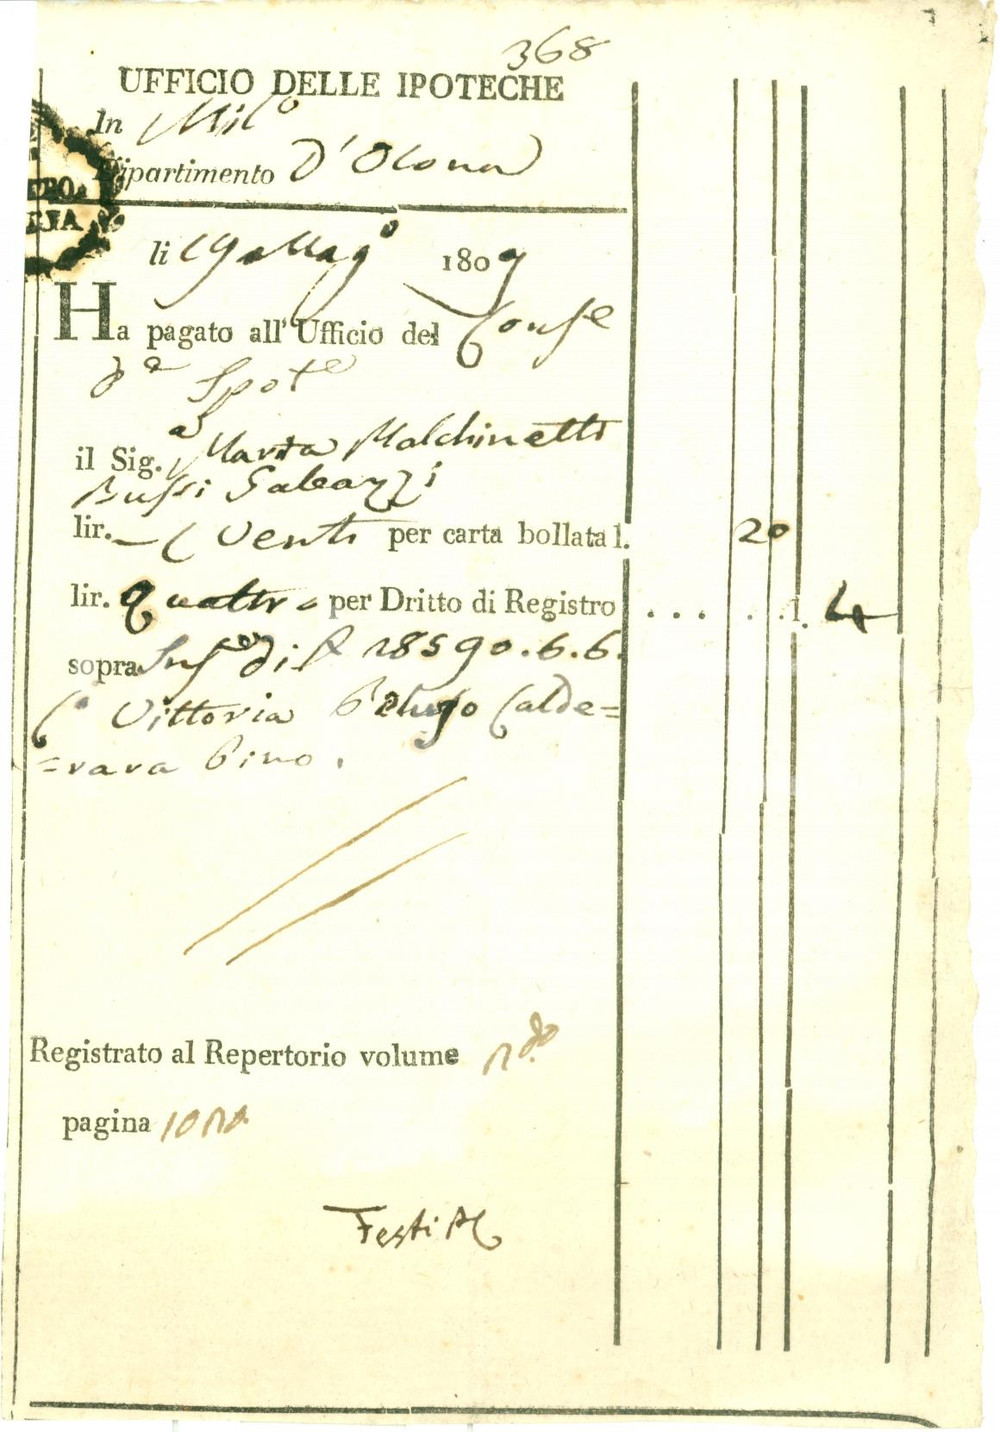 368
UFFICIO DELLE IPOTECHE
In Mil.o
Dipartimento D'Olona
li 19 Mag.o 1809
Ha pagato all'Ufficio del Conse
d.e Ipot.e
il Sig.a Maria Malchinetti
Bussi Galeazzi
lir. venti per carta bollata l. 20
lir. quattro per Dritto di Registro . . . . . l. 4
sopra di 28590.6.6.
C.a Vittoria Calde=
=rara Pino.
Registrato al Repertorio volume
pagina
Festi